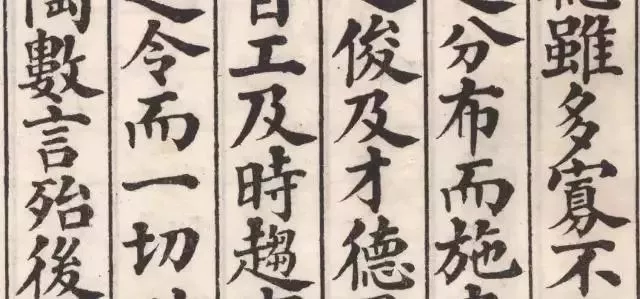 雖多寡不
分布而施
俊及才德
工及時趨
令而一切
數言殆後